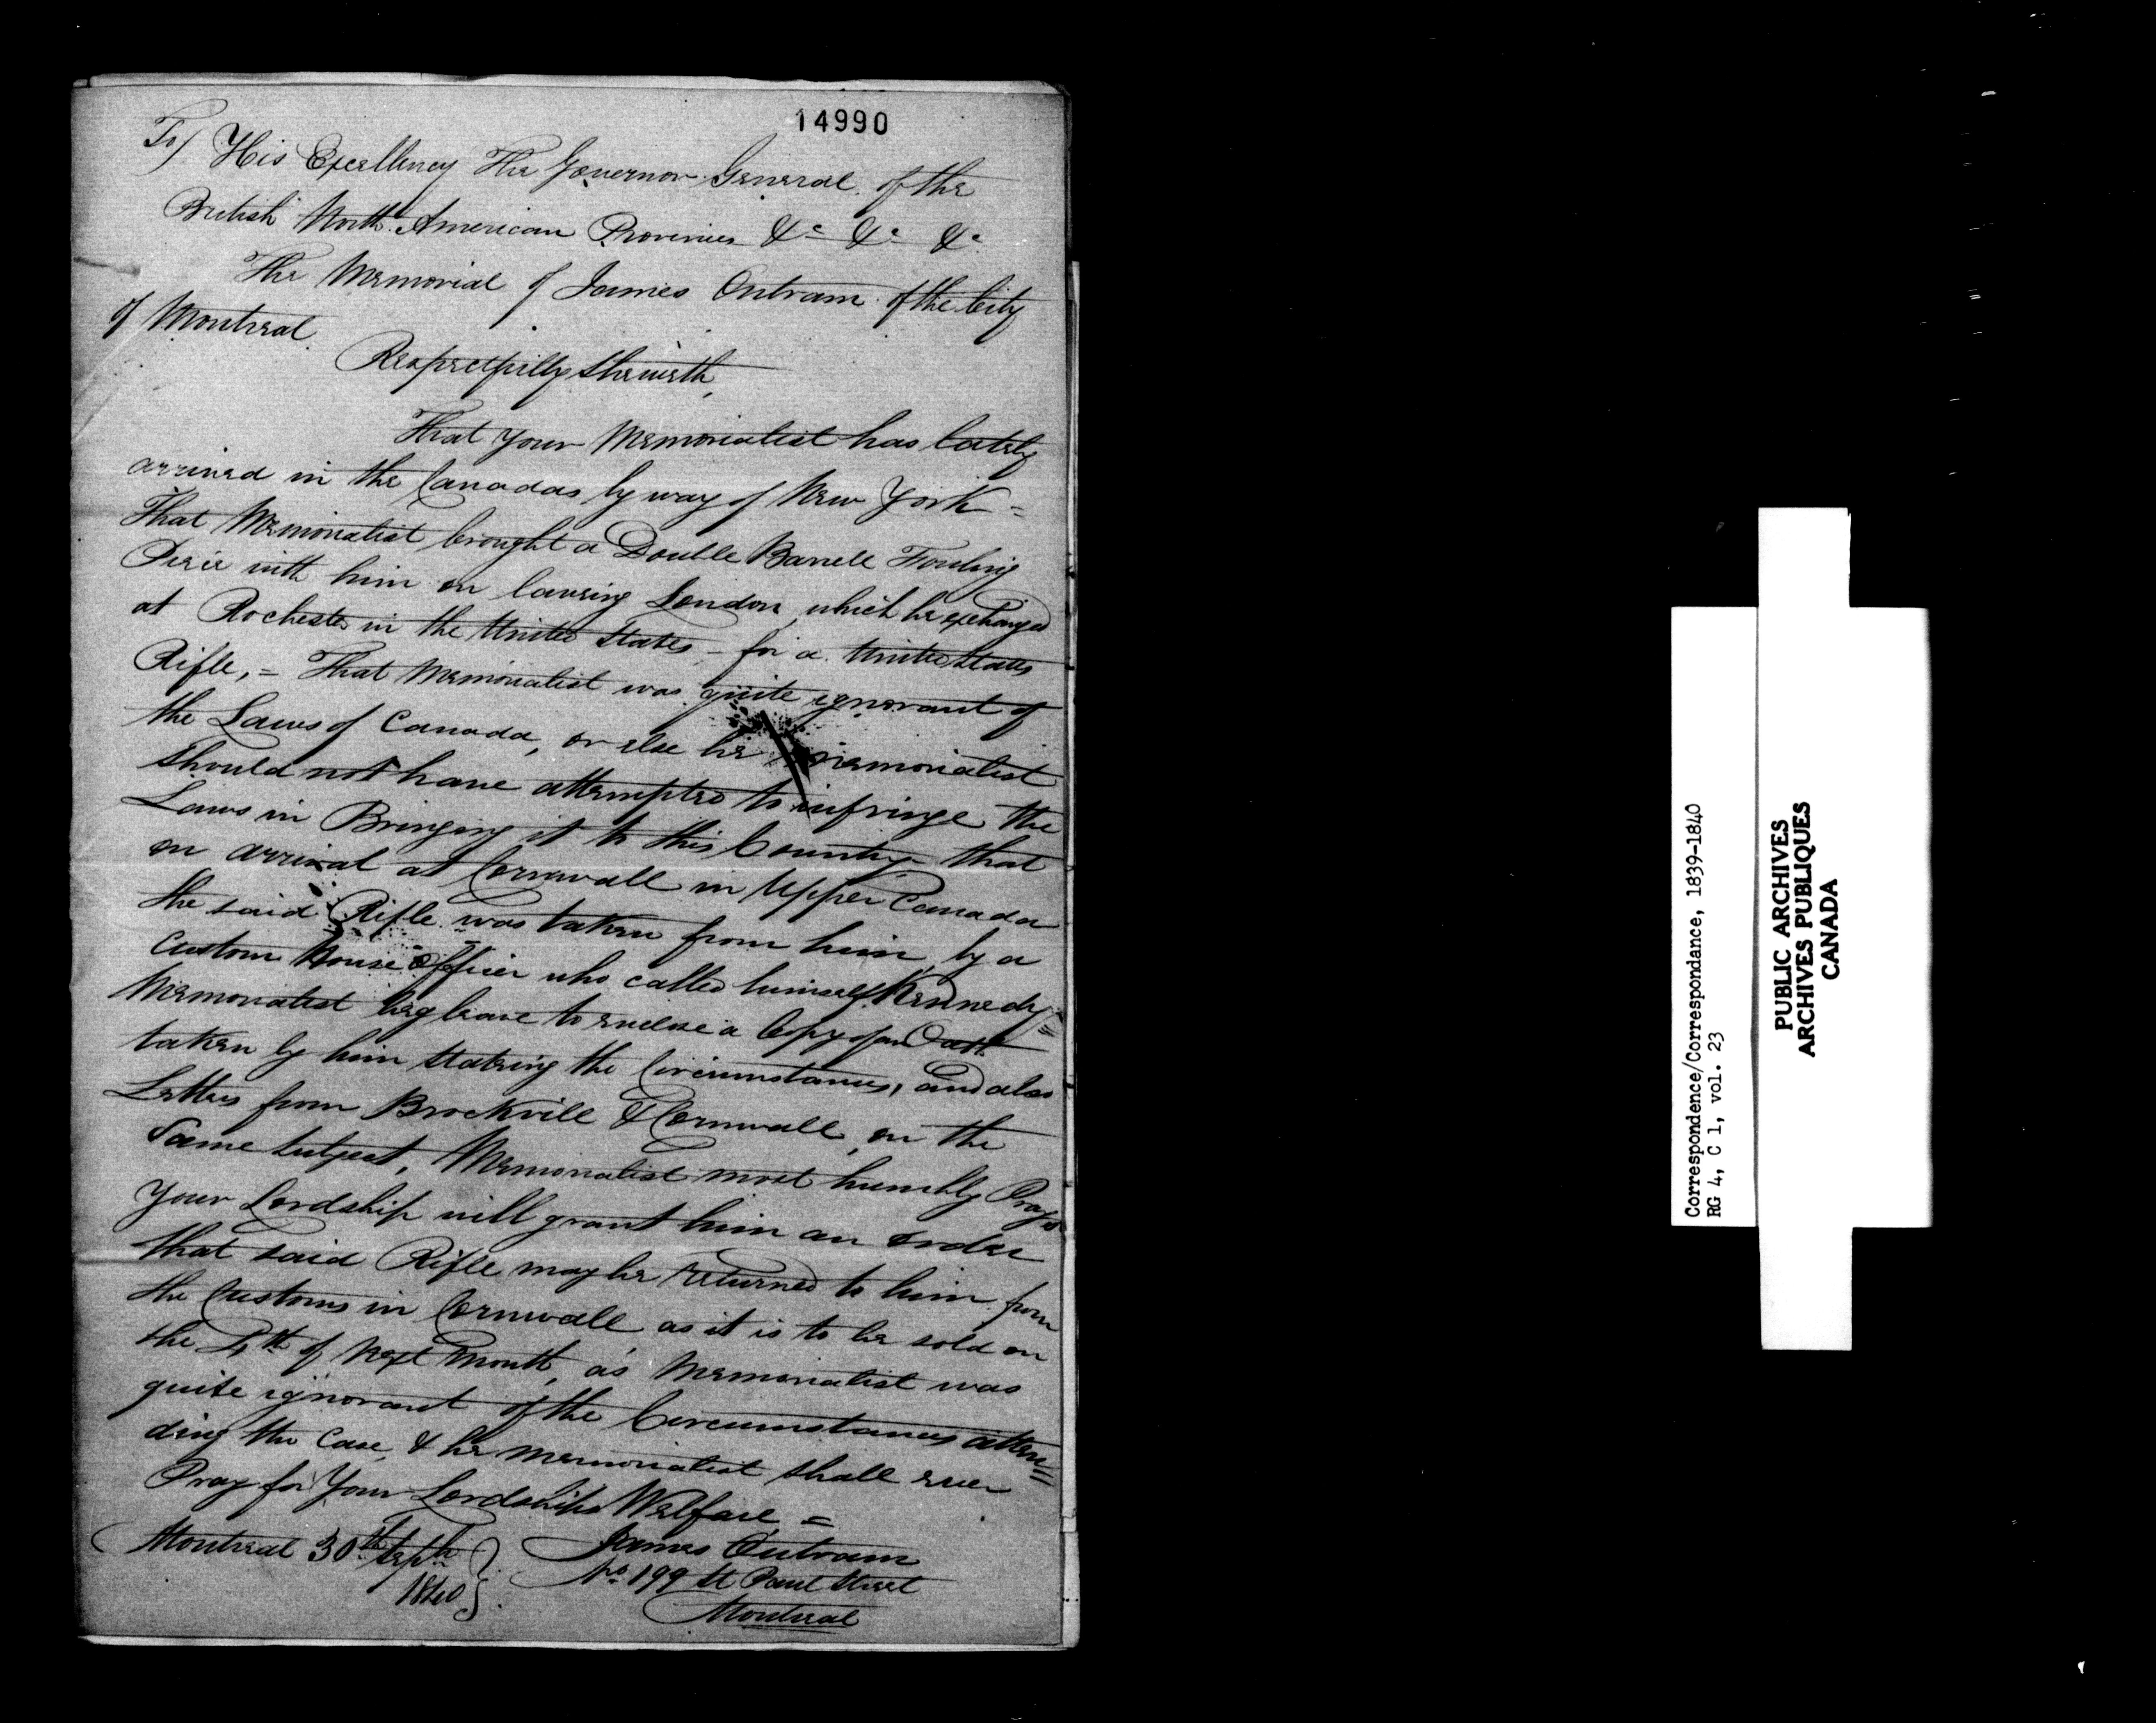 14990
To/ His Excellency The Governor General of the
British North American Provinces &c &c &c
The Memorial of James Outram of the City
of Montreal
Respectfully Sheweth,
That Your Memorialist has lately
arrived in the Canadas by way of New York =
That Memorialist brought a Double Barrell Fowling
Peice with him on leaving London, which he exchanged
at Rochester in the United States – for a United States
Rifle, = That Memorialist was quite ignorant of
the Laws of Canada, or else he memorialist
should not have attempted to infringe the
Laws in Bringing it to this Country – that
on arrival at Cornwall in Upper Canada
the said Rifle was taken from him, by a
Custom House Officer who called himself Kennedy =
Memorialist beg leave to enclose a Copy of an Oath
taken by him stateing the Circumstances, and also
Letters from Brockvill & Cornwall, on the
Same subject, Memorialist most humbly Prays
Your Lordship will grant him an order
that said Rifle may be returned to him from
the Customs in Cornwall as it is to be sold on
the 4th of Next Month, as Memorialist was
quite ignorant of the Circumstances atten=
ding the Case, & he memorialist shall ever
Pray for Your Lordships Welfare =
Montreal 30th Septr
1840
James Outram
No 199 St Paul Street
Montreal
Correspondence/Correspondance, 1839-1840
RG 4, C 1, vol. 23
PUBLIC ARCHIVES
ARCHIVES PUBLIQUES
CANADA